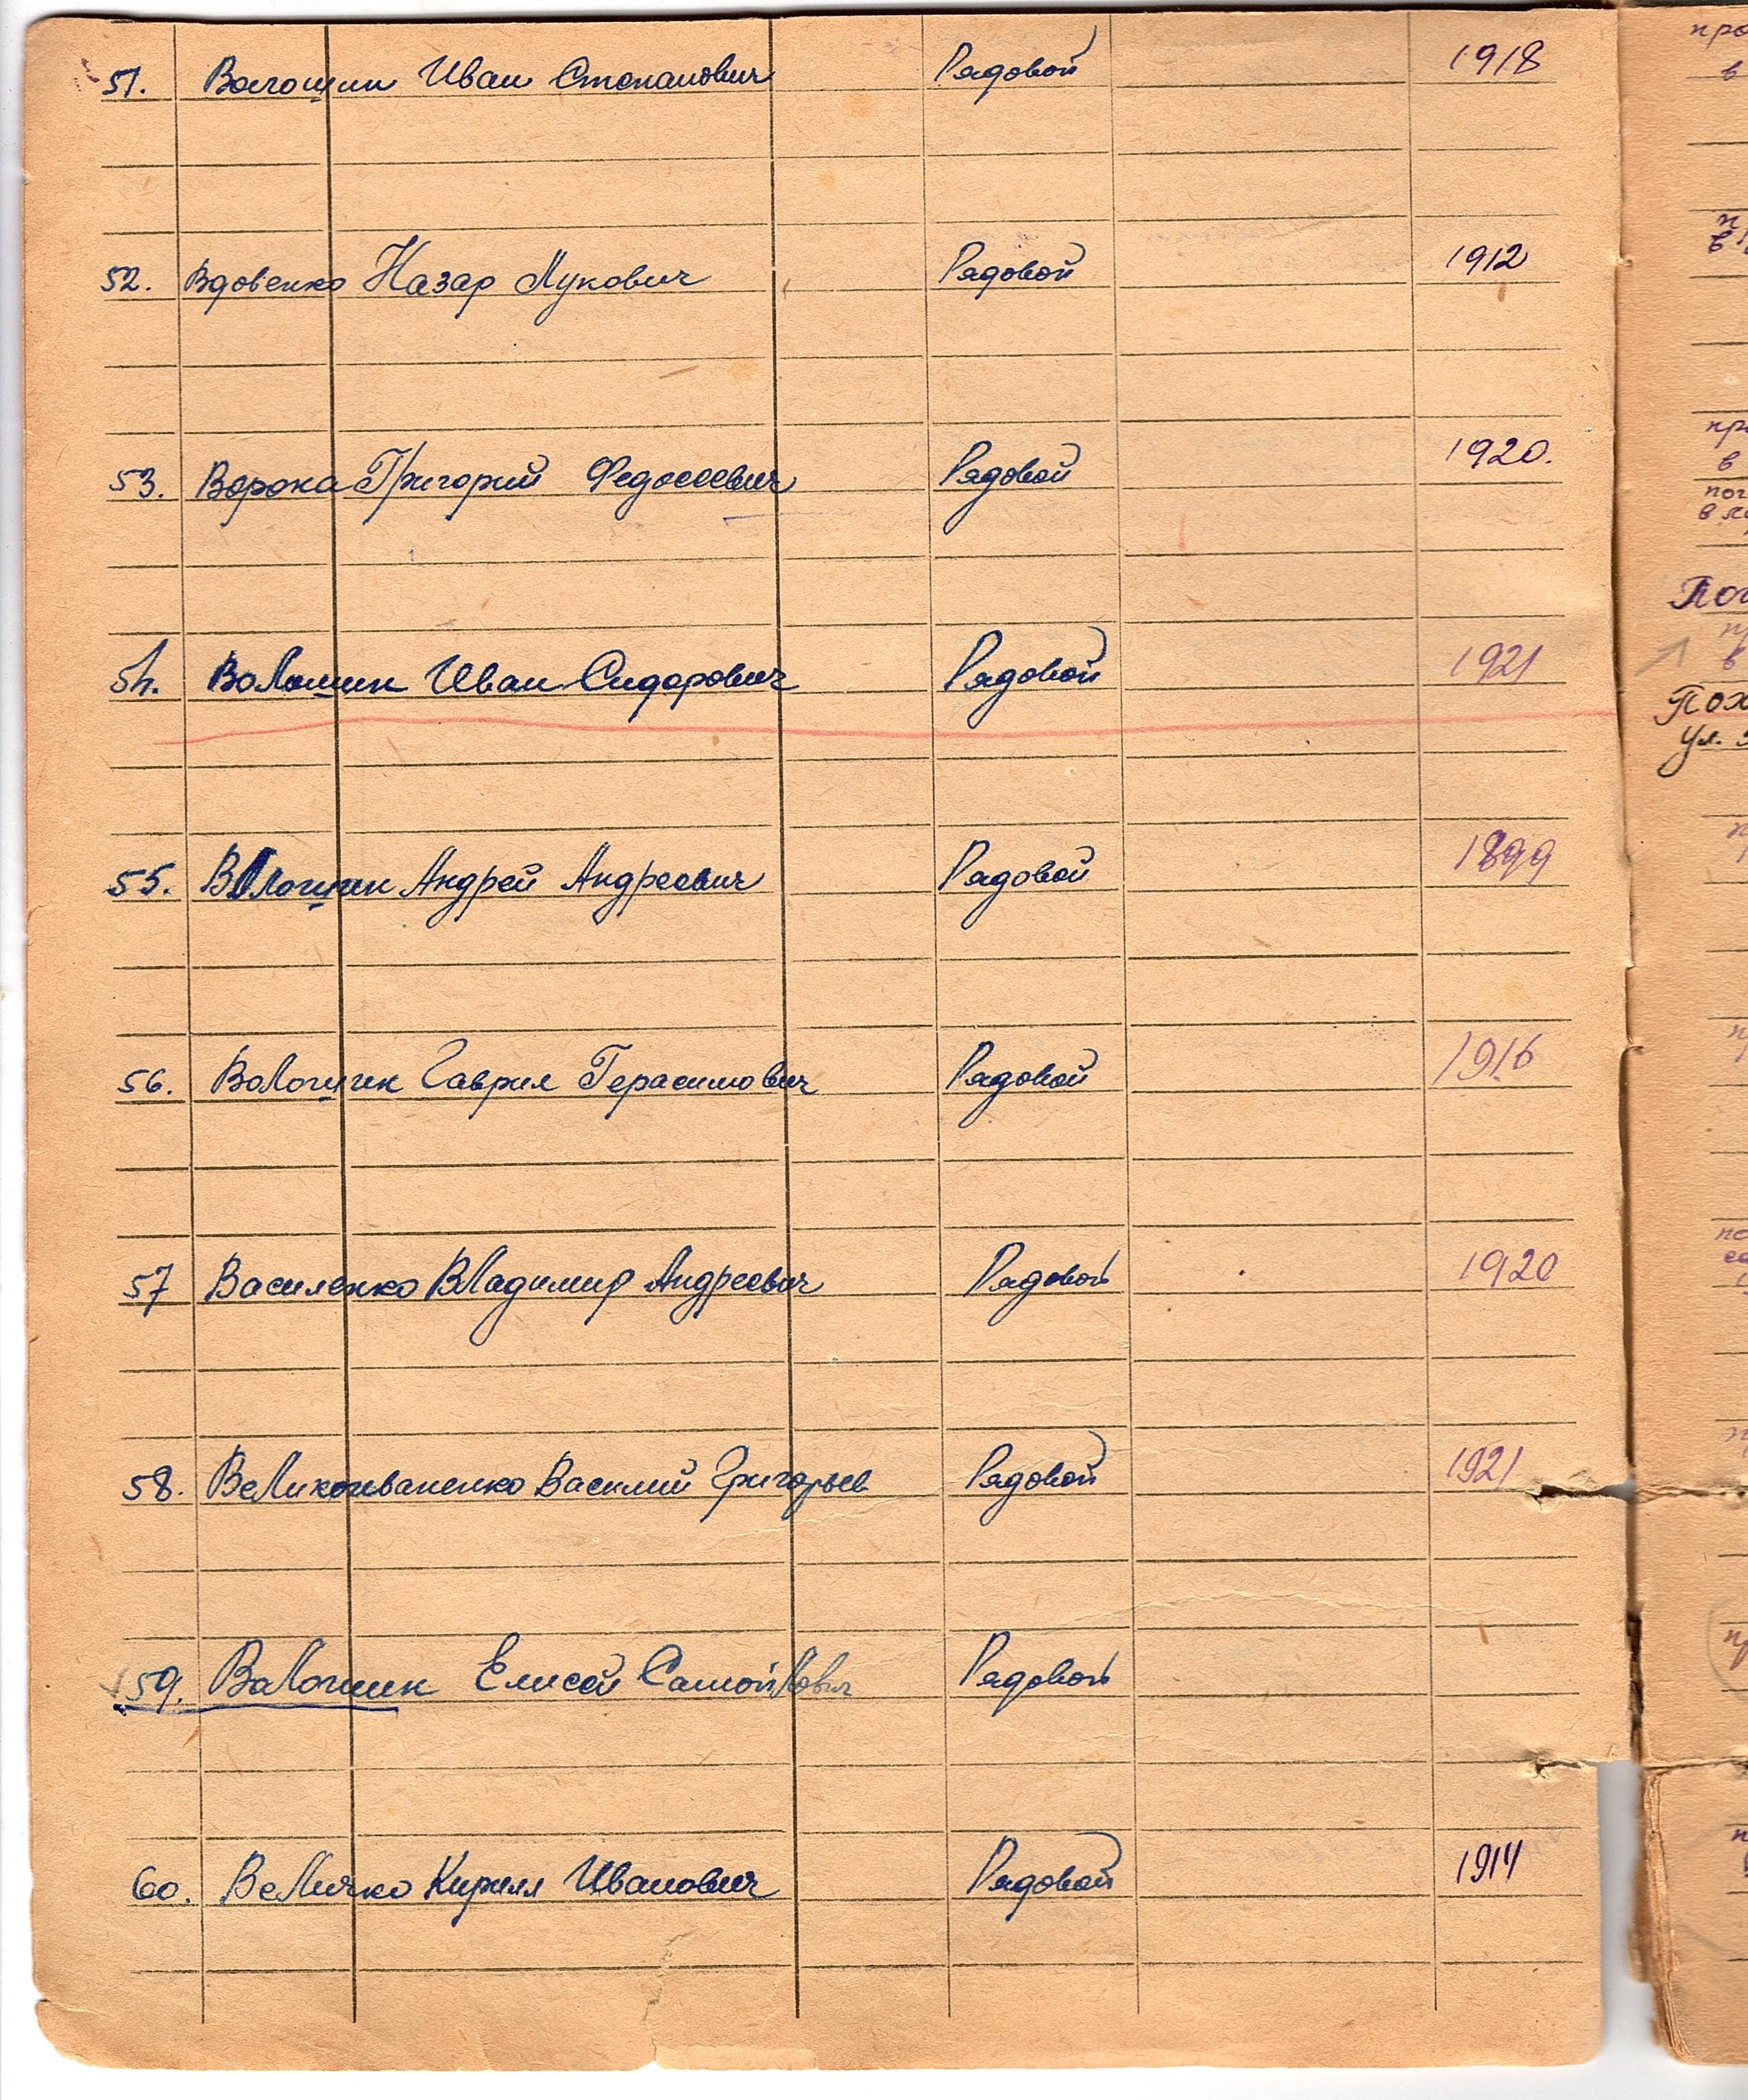 51. Волошин Иван Степанович Рядовой 1918
52. Вдовенко Назар Лукович Рядовой 1912
53. Ворона Григорий Федосеевич Рядовой 1920.
54. Волошин Иван Сидорович Рядовой 1921
55. Волошин Андрей Андреевич Рядовой 1899
56. Волошин Гаврил Герасимович Рядовой 1916
57 Василенко Владимир Андреевич Рядовой 1920
58. Великоиваненко Василий Григорьев Рядовой 1921
59. Волошин Елисей Самойлович Рядовой
60. Величко Кирилл Иванович Рядовой 1914